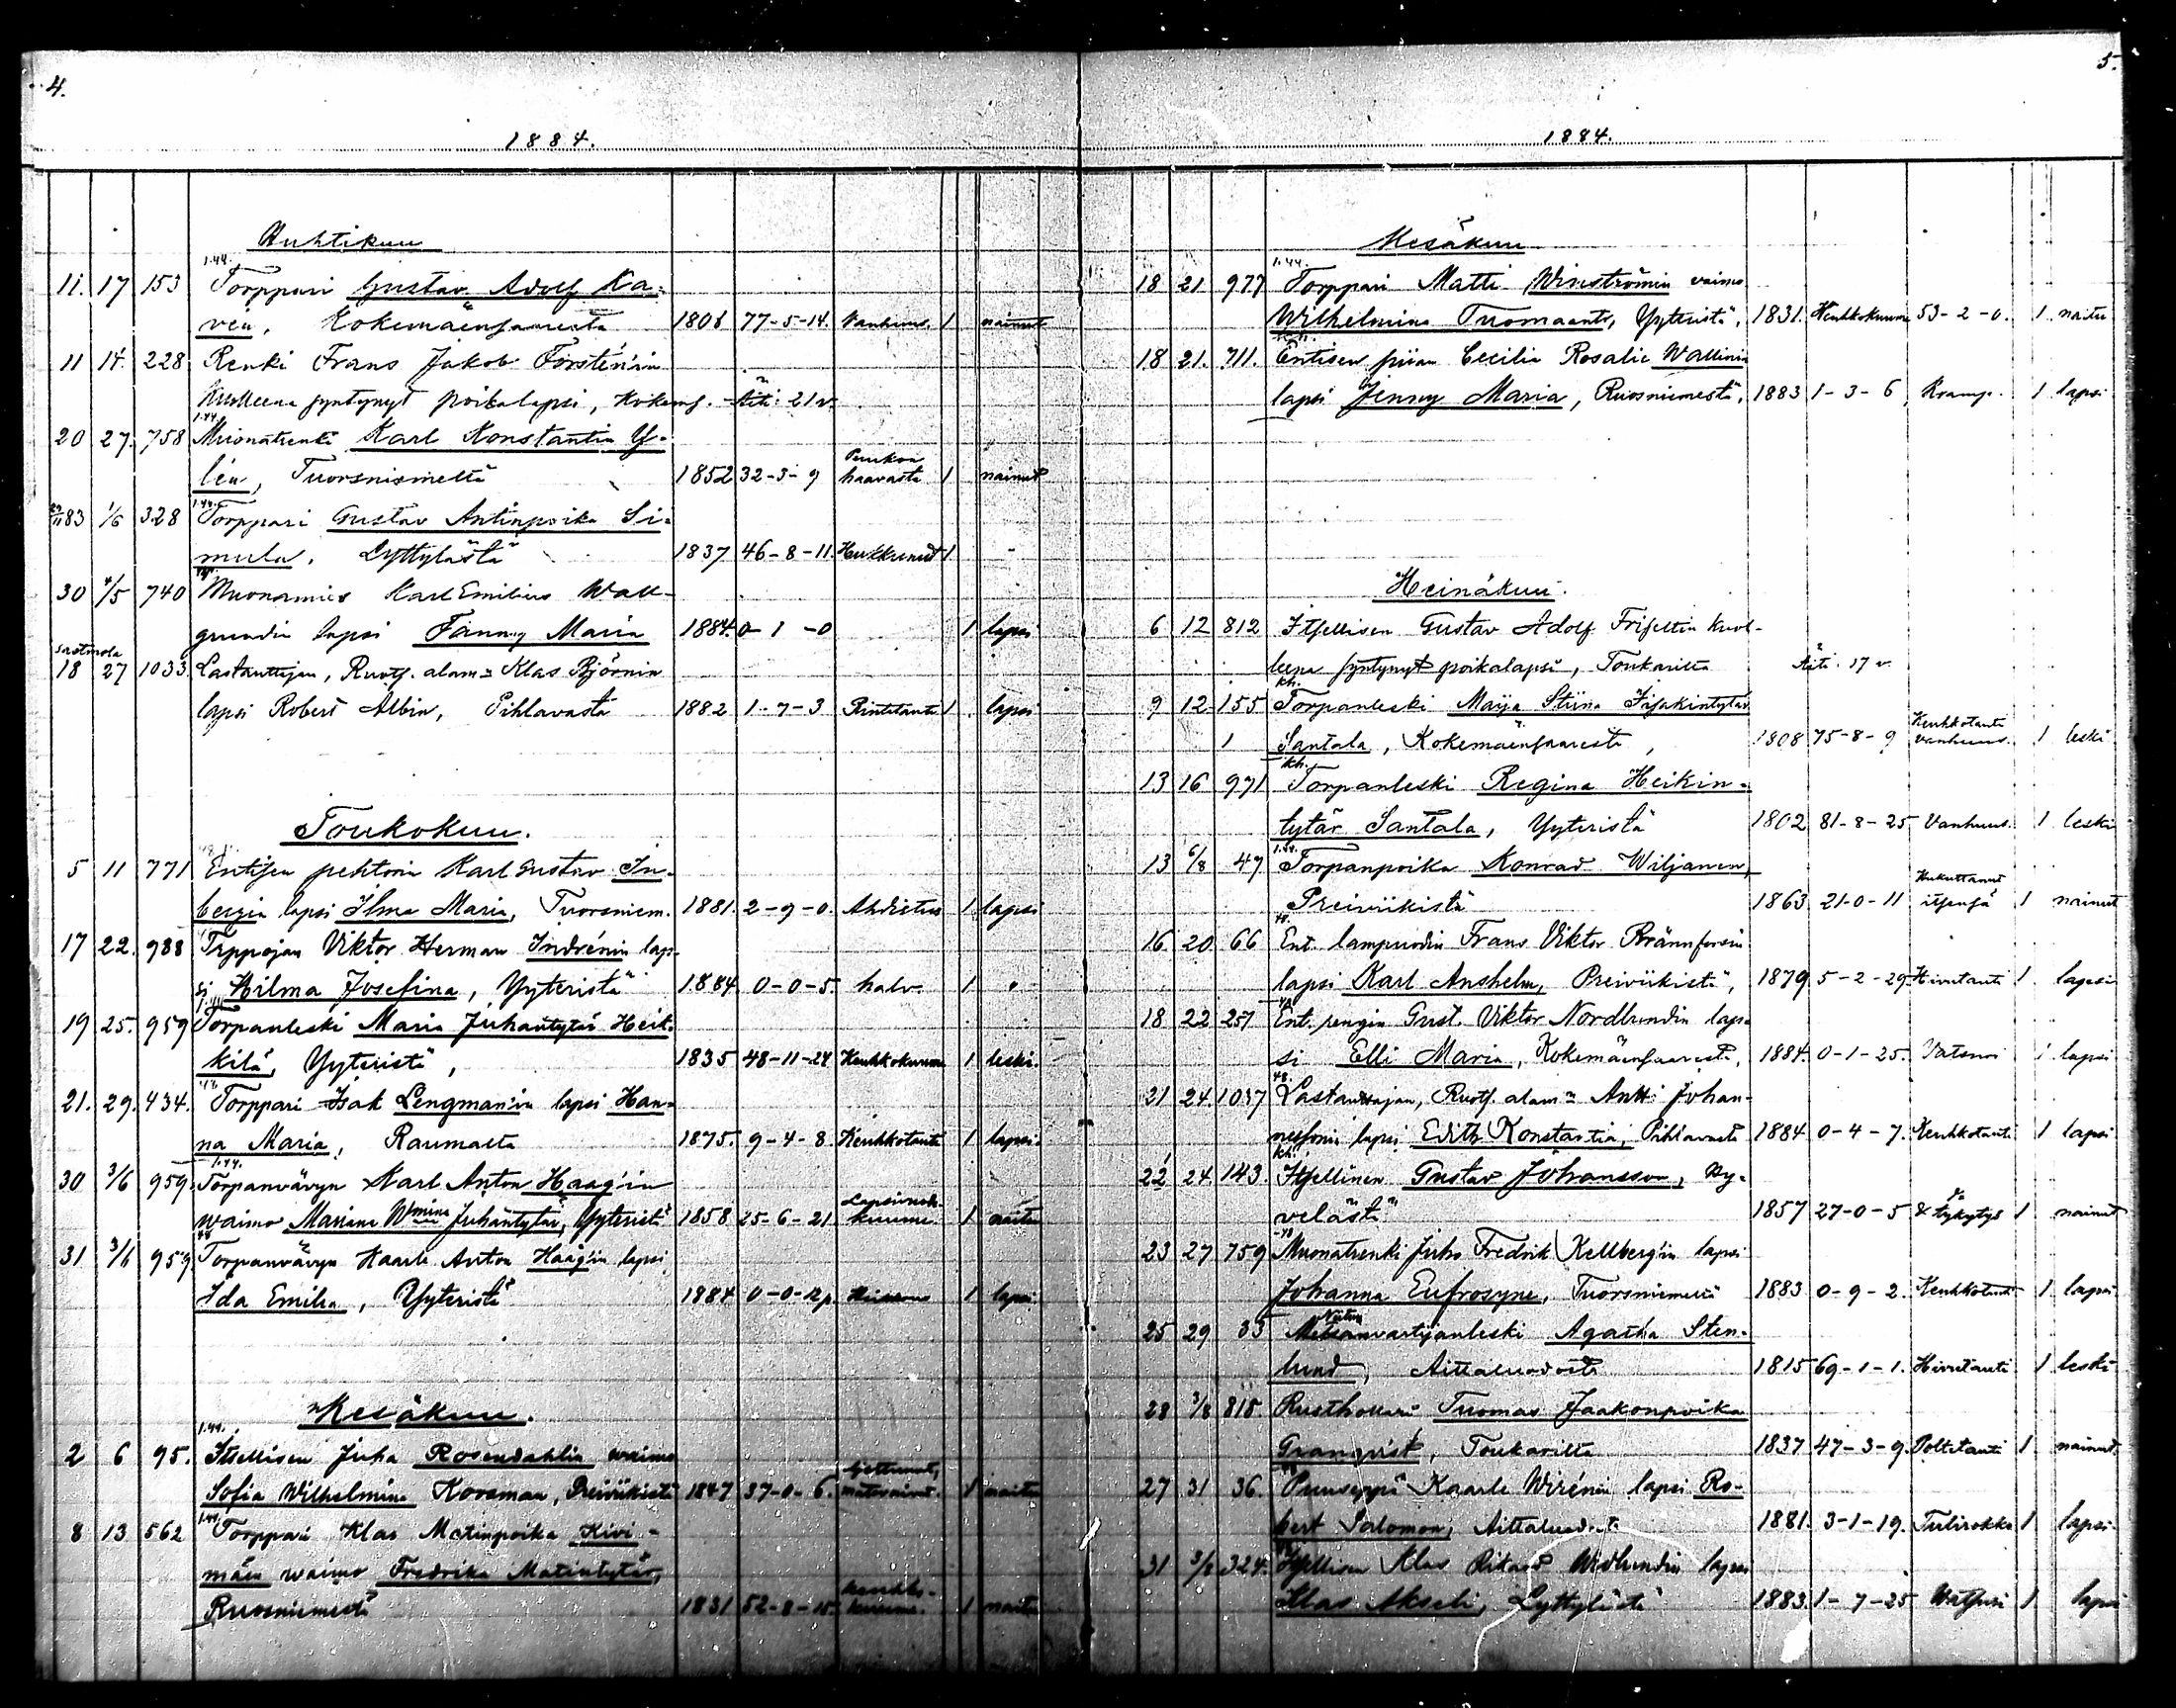 4.
1884.
Huhtikuu
1.44.
11. 17 153 Torppari Gustav Adolf Ka-
vén, Kokemäensaaresta 1806 77-5-14. Vanhuus. 1 nainut
11 14. 228 Renki Frans Jakob Forstén'in
kuolleena syntynyt poikalapsi, Kokems. - Äiti: 21 v.
1.44
20 27. 758 Muonatrenki Karl Konstantin Y-
lén, Tuorsniemeltä 1852 32-3-9 Puukon haavasta 1 nainut
1.44.
29/11 83 1/6 328 Torppari Gustav Antinpoika Si-
mula, Lyttylästä 1837 46-8-11. Hukkunut 1. -
30 4/5 740 Muonamies Karl Emilius Wall-
grundin lapsi Fanny Maria 1884. 0-1-0 1 lapsi
18 27 1033. Lastauttajan, Ruots. alam:n Klas Björnin
lapsi Robert Albin, Pihlavasta 1882 1-7-3 Rintatauti 1 lapsi
Toukokuu.
5 11 771 Entisen pehtorin Karl Gustav In-
bergin lapsi Ilma Maria, Tuorsniem. 1881. 2-9-0. Ahdistus 1 lapsi
17 22. 988 Seppäjan Viktor Herman Indrénin lap-
si Hilma Josefina, Yyteristä 1884. 0-0-5. halv. 1 "
19 25. 959 Torpanleski Maria Juhantytär Heik-
kilä, Yyteristä, 1835 48-11-24 Keuhkokuume 1 leski.
48
21. 29. 434. Torppari Isak Lengman'in lapsi Han-
na Maria, Raumalta 1875. 9-4-8 Keuhkotauti 1 lapsi.
1.44.
30 3/6 959. Torpanvävyn Karl Anton Haag'in
waimo Mariana Wmina Juhantytär, Yyteristä 1858 25-6-21 Lapsivuode kuume. 1 naitu
48
31 3/6 959 Torpanvävyn Kaarle Anton Haag'in lapsi
Ida Emilia, Yyteristä 1884 0-0-12 p. 1 lapsi
Kesäkuu.
1.44.
2 6 95. Itsellisen Juha Rosendahlin waimo
Sofia Wilhelmina Korsman, Preiviikistä 1847 37-0-6. 1 naitu
1.44.
8 13 562 Torppari Klas Matinpoika Kivi-
mäen waimo Fredrika Matintytär,
Ruosniemestä 1831 52-8-15 Keuhko-kuume 1 naitu
5.
1884.
Mesäkuu
1.44.
18 21 977 Torppari Matti Winströmin vaimo
Wilhelmina Tuomaant., Yyteristä, 1831. Keuhkokuume 53-2-0. 1. naitu
18 21. 711. Entisen piian Cecilia Rosalie Wallinin
lapsi Jenny Maria, Ruosniemestä, 1883 1-3-6 Kramp. 1 lapsi
Heinäkuu.
6 12 812 Itsellisen Gustav Adolf Friseltin kuol-
leena syntynyt poikalapsi, Toukarilta Äiti. 17 v.
kh.
9 12 155 Torpanleski Maija Stiina Isakintytär
Santala, Kokemäensaaresta, 1808 75-8-9 Keuhkotauti vanhuus. 1 leski
kh.
13 16 971 Torpanleski Regina Heikin-
tytär Santala, Yyteristä 1802 81-8-25 Vanhuus. 1 leski
1.44.
13 6/8 47 Torpanpoika Konrad Wiljanen,
Preiviikistä 1863 21-0-11 Hukuttanut itsensä 1 nainut
48.
16. 20 66 Ent. lampuodin Frans Viktor Brännforsin
lapsi Karl Anshelm, Preiviikistä, 1879 5-2-29 1. lapsi
48
18 22 257 Ent. rengin Gust. Viktor Nordlundin lap-
si Elli Maria, Kokemäensaaresta, 1884. 0-1-25. 1 lapsi
48.
21 24. 1037 Lastauttajan, Ruots. alam:n Antti Johan-
nessonin lapsi Edith Konstantia, Pihlavasta 1884 0-4-7. Keuhkotauti 1 lapsi
kh.
22 24 143. Itsellinen Gustav Johansson, Hy-
velästä 1857 27-0-5 1 nainut
48
23 27 759 Muonatrenki Juho Fredrik Kellberg'in lapsi
Johanna Eufrosyne, Tuorsniemeltä 1883 0-9-2. Keuhkotauti 1 lapsi
25 29 33 Metsänvartijanleski Agatha Sten-
lund, Aittaluodosta 1815 69-1-1. 1 leski
28 3/8 818 Rusthollari Tuomas Jaakonpoika
Granqvist, Toukarilta 1837 47-3-9. Polttotauti 1. nainut
27 31 36. Puuseppä Kaarle Wirénin lapsi Ro-
bert Salomon, Aittaluodosta 1881. 3-1-19. Tulirokko 1 lapsi.
31 3/8 324. Itsellisen Klas Rikard Widlundin lapsi
Klas Akseli, Lyttylästä 1883. 1-7-25 1. lapsi